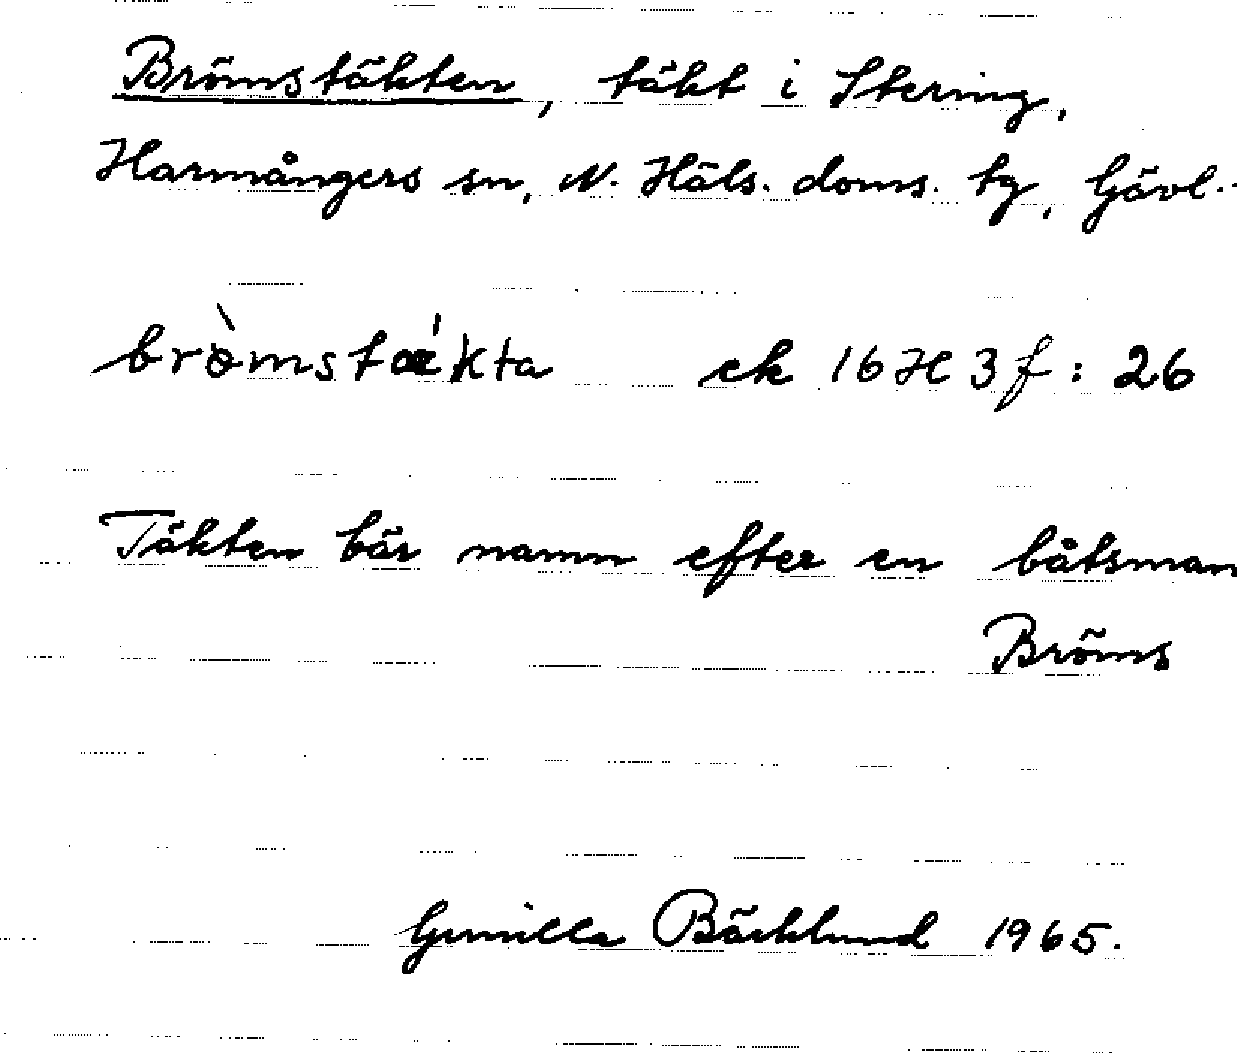 Brömstäkten, täkt i Stering,
Harmångers sn, N. Häls. doms. tg, Gävl..
brò̈mstækta ek 16 H 3 f : 26
Täkten bär namn efter en båtsman
Bröms
Gunilla Bäcklund 1965.